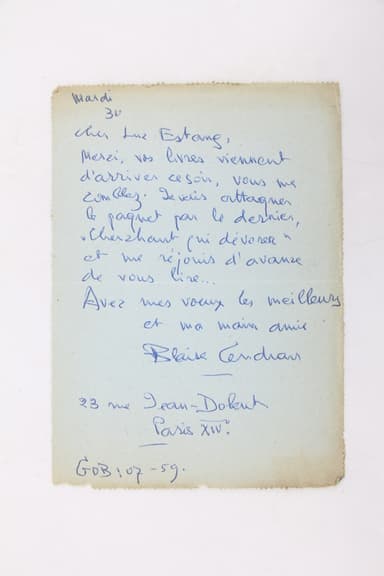 Mardi
30
Cher Luc Estang,
Merci, vos livres viennent
d'arriver ce soir, vous me
comblez. Je vais attaquer
le paquet par le dernier,
"Cherchant qui dévorer"
et me réjouis d'avance
de vous lire...
Avec mes vœux les meilleurs
et ma main amie
Blaise Cendrars
23 rue Jean-Dolent
Paris XIVe
GOB: 07-59.